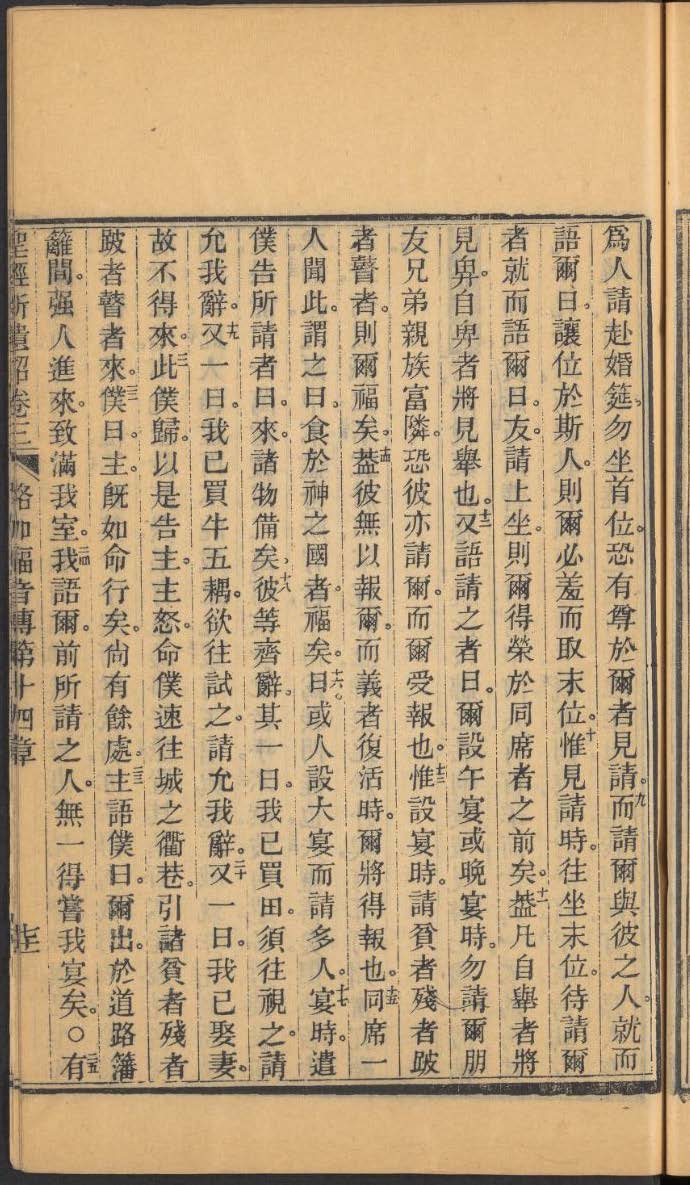 爲人請赴婚筵、勿坐首位。恐有尊於爾者見請。九而請爾與彼之人、就而
語爾曰、讓位於斯人。則爾必羞而取末位。十惟見請時、往坐末位。待請爾
者就而語爾曰、友、請上坐。則爾得榮於同席者之前矣。十一蓋凡自舉者將
見卑。自卑者將見舉也。十二又語請之者曰。爾設午宴或晚宴時。勿請爾朋
友兄弟親族富隣。恐彼亦請爾。而爾受報也。十三惟設宴時。請貧者殘者跛
者瞽者。則爾福矣。十四蓋彼無以報爾。而義者復活時。爾將得報也。十五同席一
人聞此。謂之曰、食於神之國者。福矣。十六曰。或人設大宴而請多人。十七宴時。遣
僕告所請者曰。來。諸物備矣。十八彼等齊辭。其一曰。我已買田。須往視之。請
允我辭。十九又一曰。我已買牛五耦。欲往試之。請允我辭。二十又一曰。我已娶妻。
故不得來。二一此僕歸。以是告主。主怒。命僕速往城之衢巷。引諸貧者殘者
跛者瞽者來。二二僕曰。主。旣如命行矣。尙有餘處。二三主語僕曰。爾出於道路籓
籬間。强人進來。致滿我室。二四我語爾。前所請之人。無一得嘗我宴矣。○二五有
聖經新遺詔卷三 路加福音傳第十四章